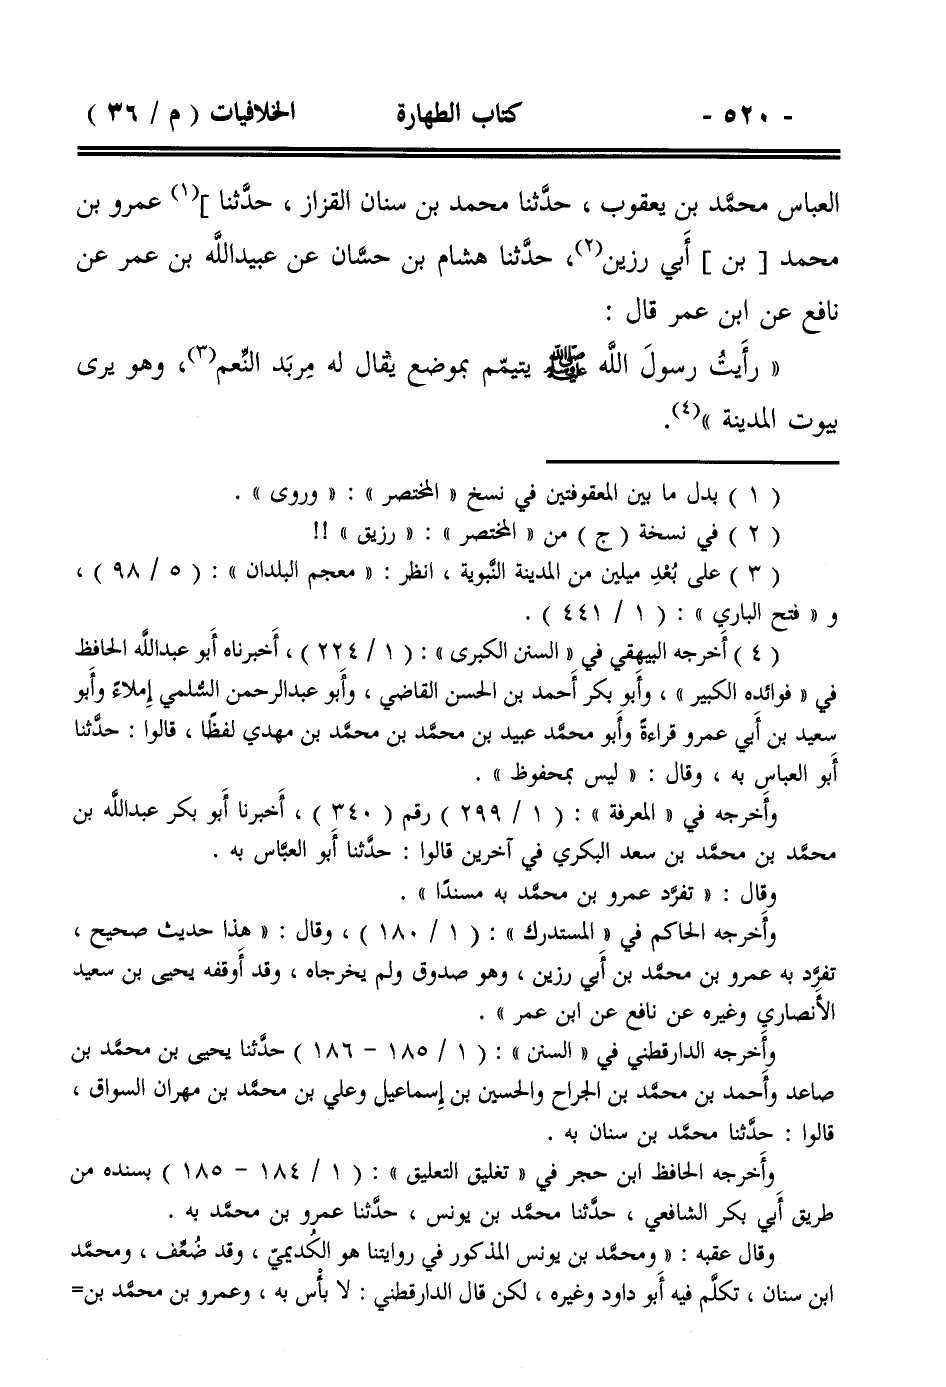 - ٥٢٠ - كتاب الطهارة الخلافيات ( م / ٣٦ )
العباس محمَّد بن يعقوب ، حدَّثنا محمد بن سنان القزاز ، حدَّثنا ](١) عمرو بن
محمد [ بن ] أَبي رزين(٢)، حدَّثنا هشام بن حسَّان عن عبيدالله بن عمر عن
نافع عن ابن عمر قال :
« رأَيتُ رسولَ الله ﷺ يتيمّم بموضع يقال له مِربَد النِّعم(٣)، وهو يرى
بيوت المدينة »(٤).
( ١ ) بدل ما بين المعقوفتين في نسخ « المختصر » : « وروى » .
( ٢ ) في نسخة ( ج ) من « المختصر » : « رزيق » !!
( ٣ ) على بُعْدِ ميلين من المدينة النَّبوية ، انظر : « معجم البلدان » : ( ٥ / ٩٨ ) ،
و « فتح الباري » : ( ١ / ٤٤١ ) .
( ٤ ) أَخرجه البيهقي في « السنن الكبرى » : ( ١ / ٢٢٤ ) ، أَخبرناه أَبو عبدالله الحافظ
في « فوائده الكبير » ، وأَبو بكر أَحمد بن الحسن القاضي ، وأَبو عبدالرحمن السُّلمي إِملاءً وأَبو
سعيد بن أَبي عمرو قراءةً وأَبو محمَّد عبيد بن محمَّد بن محمَّد بن مهدي لفظًا ، قالوا : حدَّثنا
أَبو العباس به ، وقال : « ليس بمحفوظ » .
وأَخرجه في « المعرفة » : ( ١ / ٢٩٩ ) رقم ( ٣٤٠ ) ، أَخبرنا أَبو بكر عبدالله بن
محمَّد بن محمَّد بن سعد البكري في آخرين قالوا : حدَّثنا أَبو العبَّاس به .
وقال : « تفرَّد عمرو بن محمَّد به مسندًا » .
وأَخرجه الحاكم في « المستدرك » : ( ١ / ١٨٠ ) ، وقال : « هذا حديث صحيح ،
تفرَّد به عمرو بن محمَّد بن أَبي رزين ، وهو صدوق ولم يخرجاه ، وقد أَوقفه يحيى بن سعيد
الأَنصاري وغيره عن نافع عن ابن عمر » .
وأَخرجه الدارقطني في « السنن » : ( ١ / ١٨٥ – ١٨٦ ) حدَّثنا يحيى بن محمَّد بن
صاعد وأَحمد بن محمَّد بن الجراح والحسين بن إِسماعيل وعلي بن محمَّد بن مهران السواق ،
قالوا : حدَّثنا محمَّد بن سنان به .
وأَخرجه الحافظ ابن حجر في « تغليق التعليق » : ( ١ / ١٨٤ – ١٨٥ ) بسنده من
طريق أَبي بكر الشافعي ، حدَّثنا محمَّد بن يونس ، حدَّثنا عمرو بن محمَّد به .
وقال عقبه : « ومحمَّد بن يونس المذكور في روايتنا هو الكُديميّ ، وقد ضُعِّف ، ومحمَّد
ابن سنان ، تكلَّم فيه أَبو داود وغيره ، لكن قال الدارقطني : لا بأْس به ، وعمرو بن محمَّد بن=